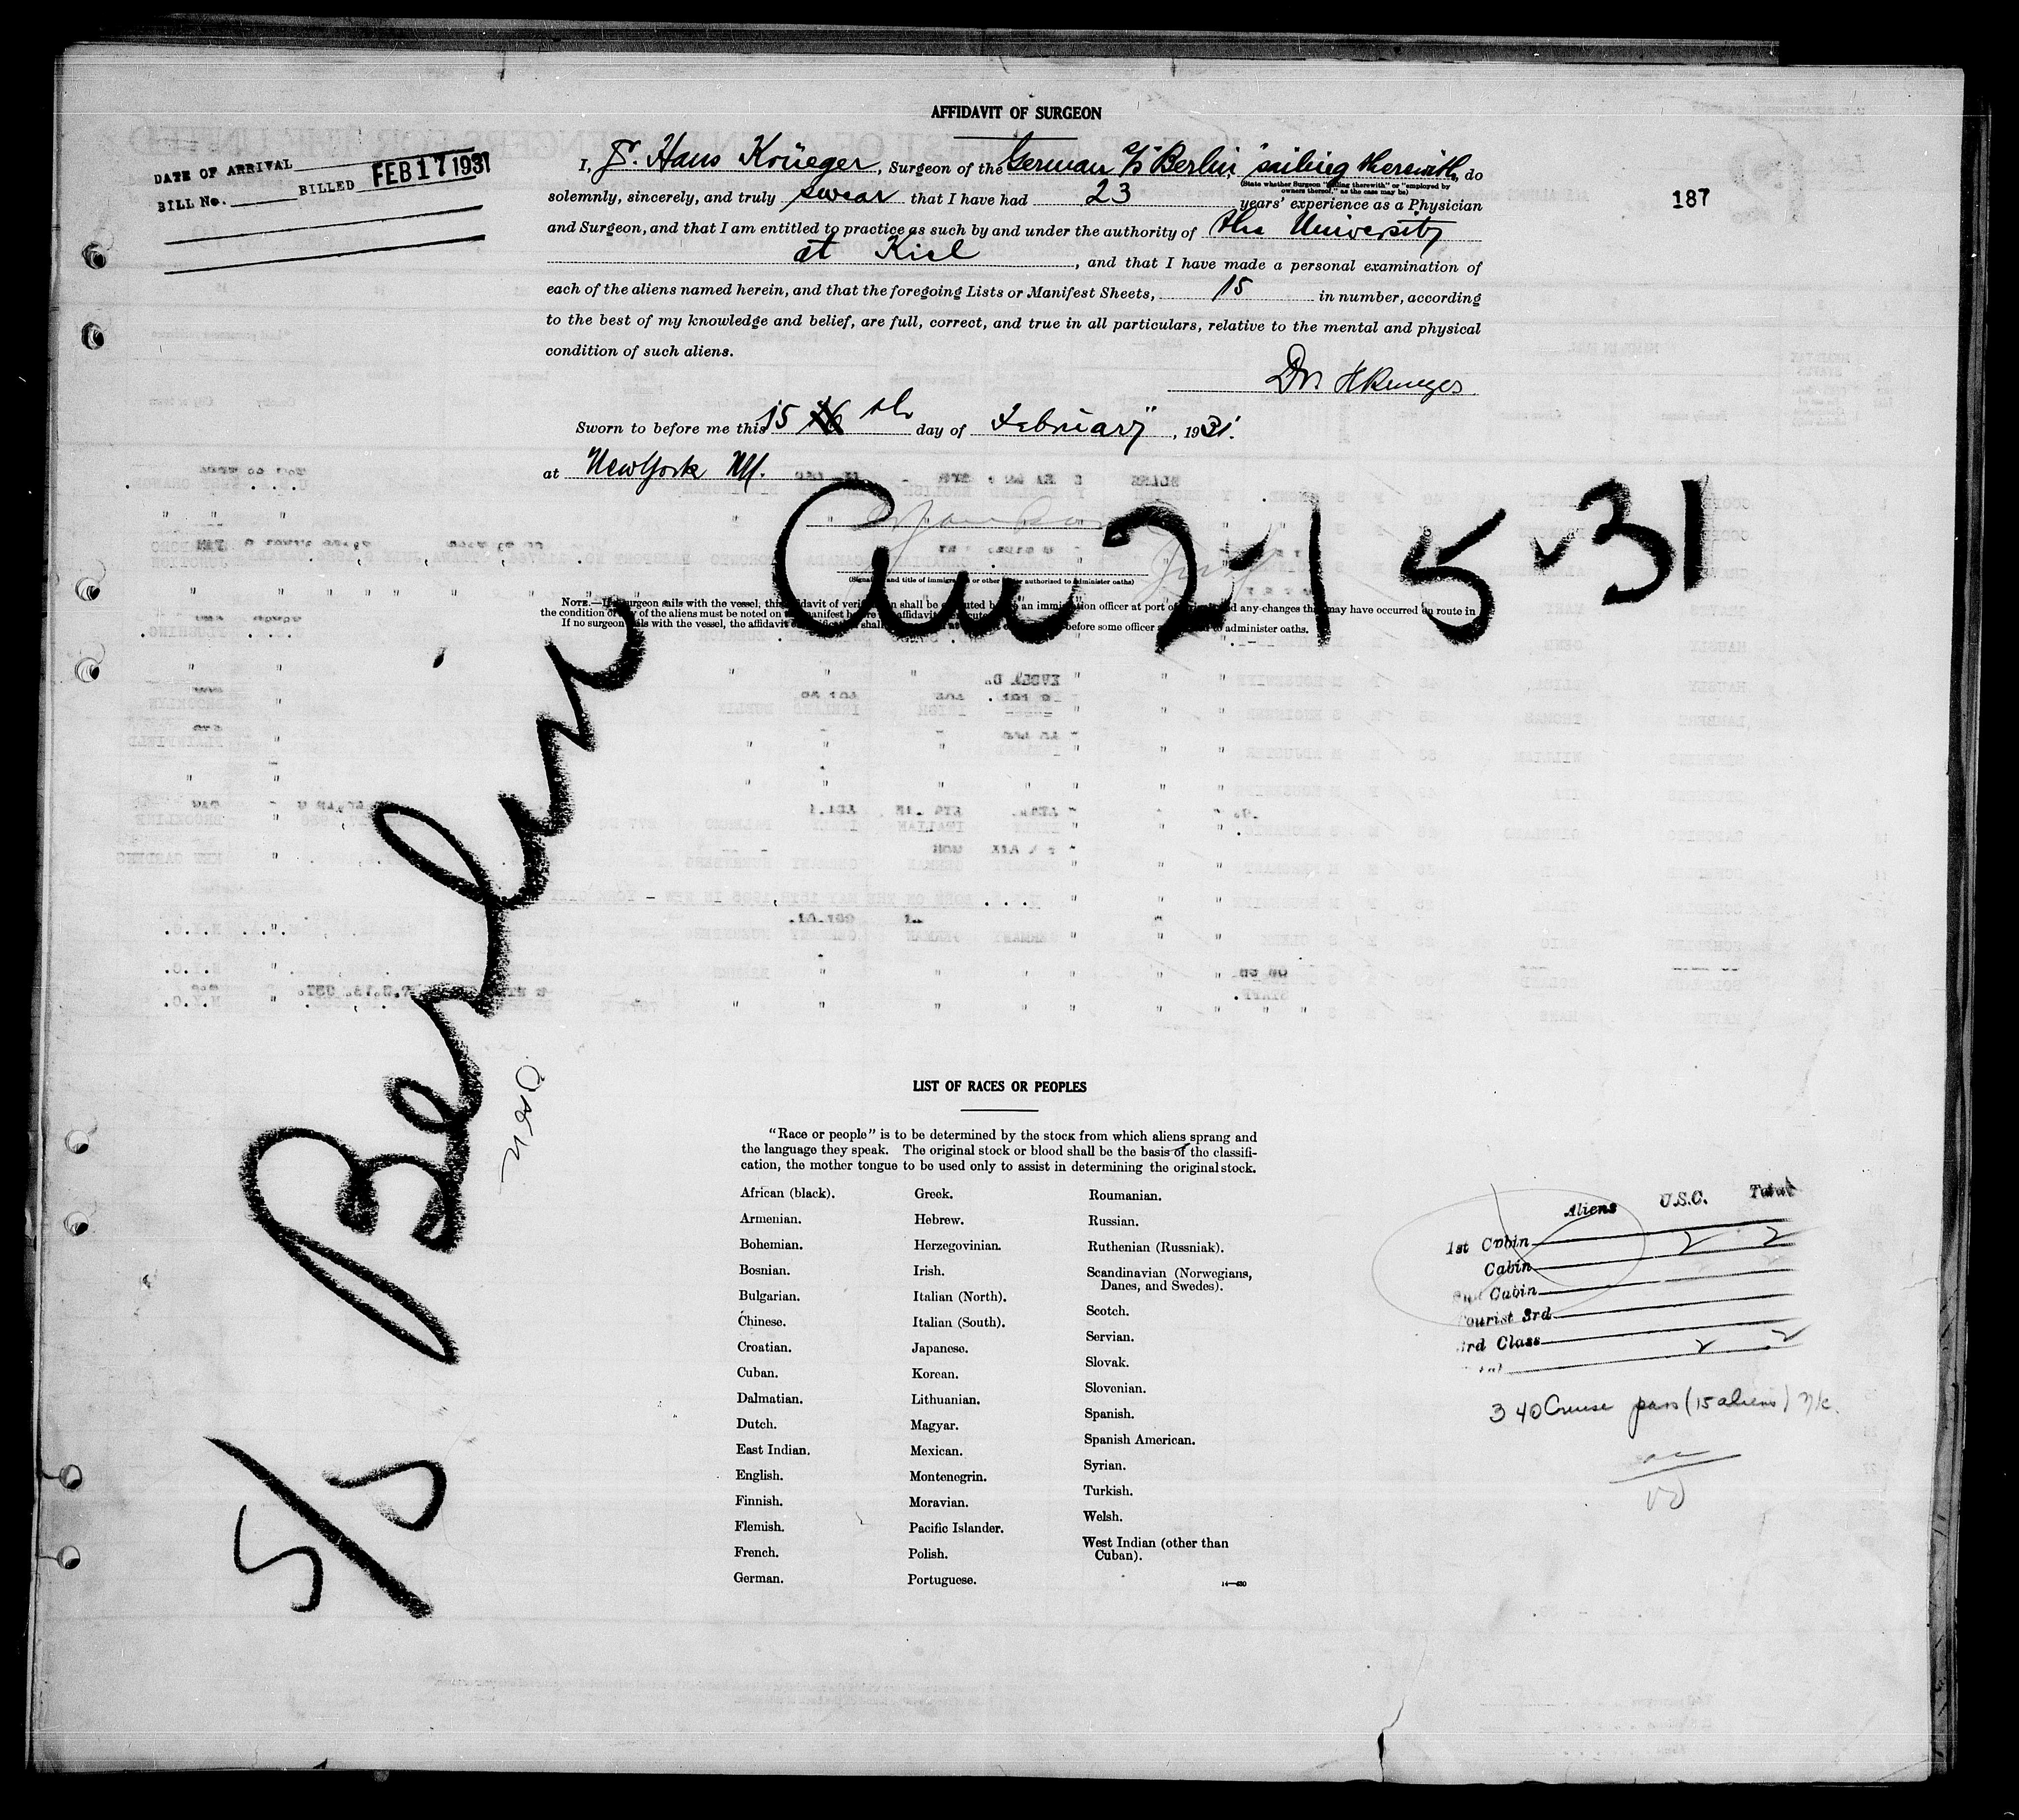 AFFIDAVIT OF SURGEON
DATE OF ARRIVAL
BILL No. BILLED FEB 17 1931
187
I, Hans Krüeger, Surgeon of the German S/S "Berlin, sailing therewith, do
(State whether Surgeon "sailing therewith" or "employed by
owners thereof," as the case may be)
solemnly, sincerely, and truly swear that I have had 23 years' experience as a Physician
and Surgeon, and that I am entitled to practice as such by and under the authority of the University
at Kiel, and that I have made a personal examination of
each of the aliens named herein, and that the foregoing Lists or Manifest Sheets, 15 in number, according
to the best of my knowledge and belief, are full, correct, and true in all particulars, relative to the mental and physical
condition of such aliens.
Dr. HKrueger
Sworn to before me this 15 16 th day of February, 1931.
at New York NY.
Arr 2-15-31
(Signature and title of immigration or other officer authorized to administer oaths)
NOTE.—If a surgeon sails with the vessel, this affidavit of verification shall be executed before an immigration officer at port of and any changes that may have occurred en route in
the condition of any of the aliens must be noted on the manifest before the affidavit is executed
If no surgeon sails with the vessel, the affidavit of verification shall be before some officer authorized to administer oaths.
S/S Berlin
LIST OF RACES OR PEOPLES
"Race or people" is to be determined by the stock from which aliens sprang and
the language they speak. The original stock or blood shall be the basis of the classifi-
cation, the mother tongue to be used only to assist in determining the original stock.
African (black).
Armenian.
Bohemian.
Bosnian.
Bulgarian.
Chinese.
Croatian.
Cuban.
Dalmatian.
Dutch.
East Indian.
English.
Finnish.
Flemish.
French.
German.
Greek.
Hebrew.
Herzegovinian.
Irish.
Italian (North).
Italian (South).
Japanese.
Korean.
Lithuanian.
Magyar.
Mexican.
Montenegrin.
Moravian.
Pacific Islander.
Polish.
Portuguese.
Roumanian.
Russian.
Ruthenian (Russniak).
Scandinavian (Norwegians,
Danes, and Swedes).
Scotch.
Servian.
Slovak.
Slovenian.
Spanish.
Spanish American.
Syrian.
Turkish.
Welsh.
West Indian (other than
Cuban).
Aliens U.S.C. Total
1st Cabin 2 2
Cabin
2nd Cabin
Tourist 3rd
3rd Class 2 2
340 Cruise pass (15 aliens)